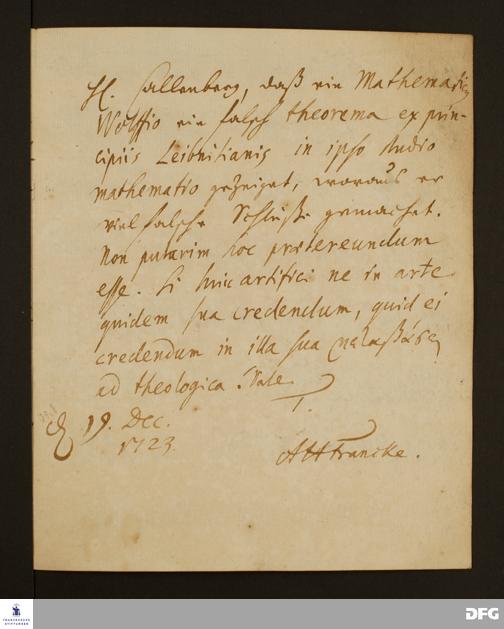 H. Callenberg, daß ein Mathematicus
Wolffio ein falsch theorema ex prin-
cipiis Leibnitianis in ipso studio
mathematico gezeiget, woraus er
viel falsche Schlüße gemachet.
Non putarim hoc prætereundum
esse. Si huic artifici ne in arte
quidem sua credendum, quid ei
credendum in illa sua μεταβάσει
ad theologica? Vale.
19. Dec.
1723.
AHFrancke.
FRANCKESCHE
STIFTUNGEN
DFG